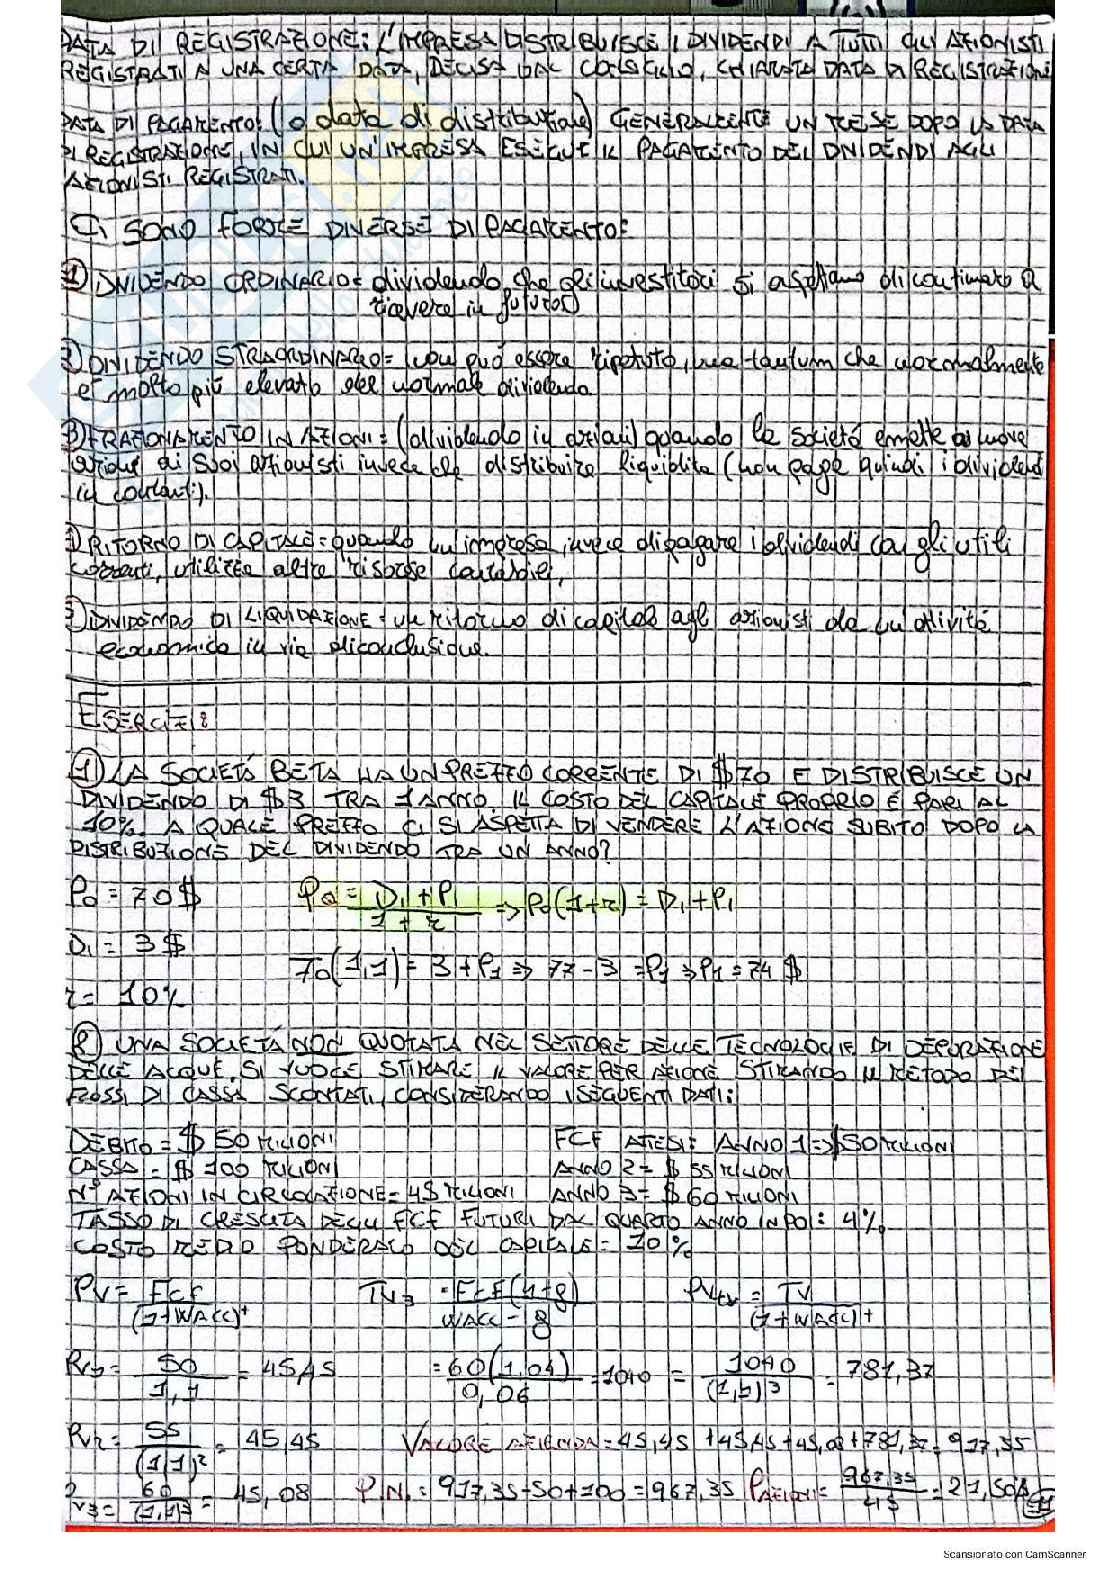 DATA DI REGISTRAZIONE: L'IMPRESA DISTRIBUISCE I DIVIDENDI A TUTTI GLI AZIONISTI
REGISTRATI A UNA CERTA DATA, DECISA DAL CONSIGLIO, CHIAMATA DATA DI REGISTRAZIONE
DATA DI PAGAMENTO: (o data di distribuzione) GENERALMENTE UN MESE DOPO LA DATA
DI REGISTRAZIONE, IN CUI UN'IMPRESA ESEGUE IL PAGAMENTO DEI DIVIDENDI AGLI
AZIONISTI REGISTRATI.
CI SONO FORME DIVERSE DI PAGAMENTO:
1) DIVIDENDO ORDINARIO = dividendo che gli investitori si aspettano di continuare a
ricevere in futuro
2) DIVIDENDO STRAORDINARIO = non può essere ripetuto, una tantum che normalmente
è molto più elevato del normale dividendo
3) FRAZIONAMENTO IN AZIONI = (dividendo in azioni) quando la società emette nuove
azioni ai suoi azionisti invece che distribuire liquidità (non paga quindi i dividendi
in contanti).
4) RITORNO DI CAPITALE = quando un'impresa invece di pagare i dividendi con gli utili
correnti, utilizza altre risorse contabili,
5) DIVIDENDO DI LIQUIDAZIONE = un ritorno di capitale agli azionisti da un'attività
economica in via di conclusione.
ESERCIZI:
1) LA SOCIETÁ BETA HA UN PREZZO CORRENTE DI $70 E DISTRIBUISCE UN
DIVIDENDO DI $3 TRA 1 ANNO. IL COSTO DEL CAPITALE PROPRIO È PARI AL
10%. A QUALE PREZZO CI SI ASPETTA DI VENDERE L'AZIONE SUBITO DOPO LA
DISTRIBUZIONE DEL DIVIDENDO TRA UN ANNO?
P0 = 70$ P0 = D1 + P1 / 1 + r => P0(1+r) = D1 + P1
D1 = 3$
70(1,1) = 3 + P1 => 77 - 3 = P1 => P1 = 74 $
r = 10%
2) UNA SOCIETÁ NON QUOTATA NEL SETTORE DELLE TECNOLOGIE DI DEPURAZIONE
DELLE ACQUE. SI VUOLE STIMARE IL VALORE PER AZIONE STIMANDO IL METODO DEI
FLUSSI DI CASSA SCONTATI, CONSIDERANDO I SEGUENTI DATI:
DEBITO = $ 50 MILIONI FCF ATTESI: ANNO 1 => $50 MILIONI
CASSA = $ 100 MILIONI ANNO 2 = $ 55 MILIONI
N° AZIONI IN CIRCOLAZIONE = 45 MILIONI ANNO 3 = $ 60 MILIONI
TASSO DI CRESCITA DEGLI FCF FUTURI DAL QUARTO ANNO IN POI: 4%
COSTO MEDIO PONDERATO DEL CAPITALE = 10%
PV = FCF / (1+WACC)^t TV3 = FCF(1+g) / WACC - g PVtv = TV / (1+WACC)^t
PV1 = 50 / 1,1 = 45,45 = 60(1,04) / 0,06 = 1040 = 1040 / (1,1)^3 = 781,37
PV2 = 55 / (1,1)^2 = 45,45 VALORE AZIENDA = 45,45 + 45,45 + 45,08 + 781,37 = 917,35
PV3 = 60 / (1,1)^3 = 45,08 P.N. = 917,35 - 50 + 100 = 967,35 P AZIONI = 967,35 / 45 = 21,50$
Scansionato con CamScanner